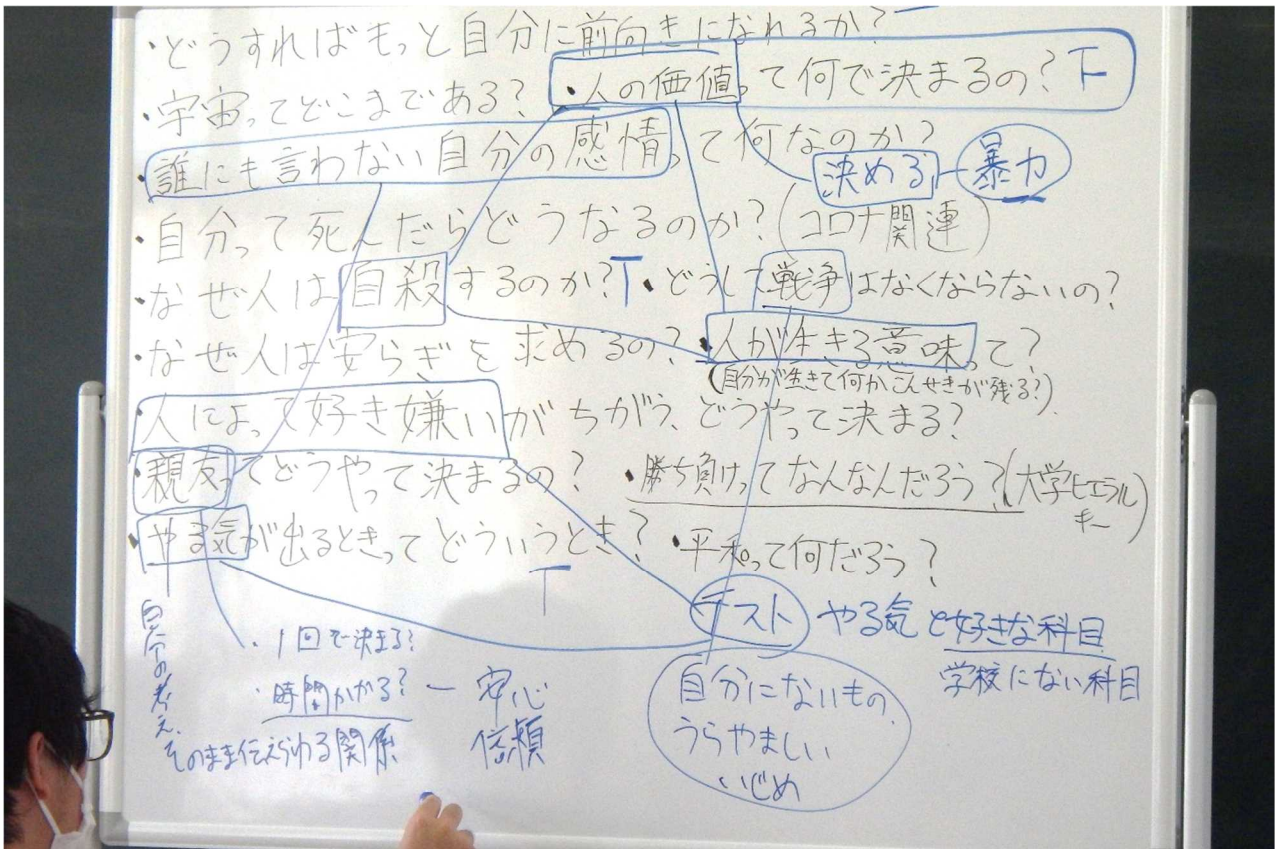 ・どうすればもっと自分に前向きになれるか？
・宇宙ってどこまである？ ・人の価値って何で決まるの？ T
・誰にも言わない自分の感情って何なのか？
決める 暴力
・自分って死んだらどうなるのか？（コロナ関連）
・なぜ人は自殺するのか？T ・どうして戦争はなくならないの？
・なぜ人は安らぎを求めるの？ ・人が生きる意味って？
（自分が生きて何かこんせきが残る？）
人によって好き嫌いがちがう、どうやって決まる？
・親友ってどうやって決まるの？ ・勝ち負けってなんなんだろう？（大学ヒエラルキー）
・やる気が出るときってどういうとき？ ・平和って何だろう？
T
テスト やる気と好きな科目
学校にない科目
・1回で決まる？
・時間かかる？ー安心
信頼
自分の考え、そのまま伝えられる関係
自分にないもの、
うらやましい
いじめ